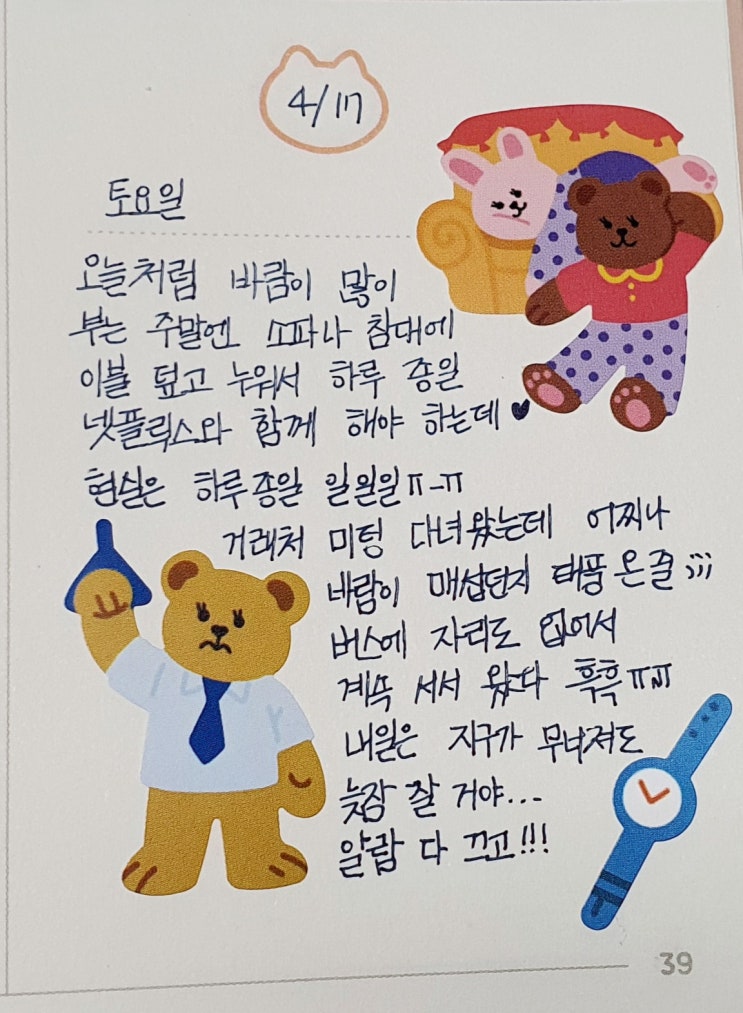 4/17
토요일
오늘처럼 바람이 많이
부는 주말엔 소파나 침대에
이불 덮고 누워서 하루 종일
넷플릭스와 함께 해야 하는데 ♥
현실은 하루종일 일일일ㅠ-ㅠ
거래처 미팅 다녀왔는데 어찌나
바람이 매섭던지 태풍 온 줄 ;;;
버스에 자리도 없어서
계속 서서 왔다 흑흑 ㅠㅠ
내일은 지구가 무너져도
늦잠 잘 거야...
알람 다 끄고!!!
39